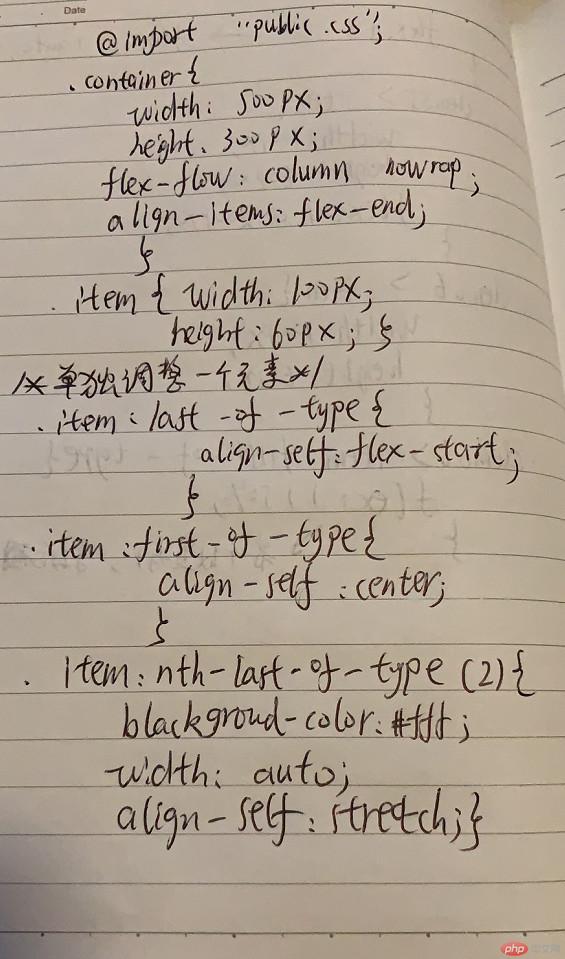 Date
@import "public.css";
.container{
width: 500px;
height. 300px;
flex-flow: column nowrap;
align-items: flex-end;
}
.item { width: 100px;
height: 60px; }
/* 单独调整一个元素 */
.item:last-of-type {
align-self: flex-start;
}
.item:first-of-type {
align-self: center;
}
.item:nth-last-of-type (2){
blackgroud-color: #fff;
width: auto;
align-self: stretch;}
php